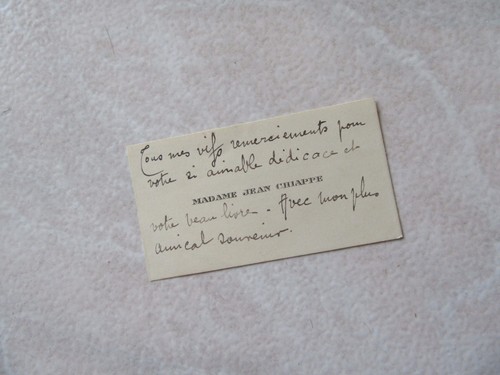 Tous mes vifs remerciements pour
votre si aimable dédicace et
MADAME JEAN CHIAPPE
votre beau livre. Avec mon plus
amical souvenir.